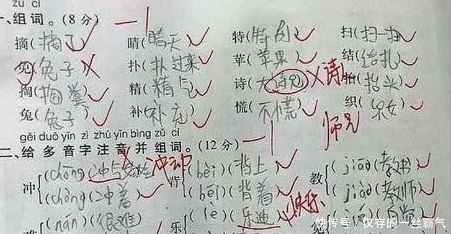 zǔ cí
一、组词。(8分)
摘(摘了) 晴(晴天) 特(特别) 扫(扫一扫)
兔(兔子) 扑(扑过来) 苹(苹果) 结(结扎)
掏(掏粪) 精(精占) 诗(大诗兄) 诗 抬(抬头)
兔(兔子) 补(补充) 慌(不慌) 织(织女)
师兄
gěi duō yīn zì zhù yīn bìng zǔ cí
二、给多音字注音并组词。(12分)
冲 (chōng)(冲与) 冲动 背 (bēi)(背上) 教 (jiāo)(教书)
(chòng)(冲着) (bèi)(背着) (jiào)(教师)
(nán)(很难) 乐 (lè)(乐迪) 快乐
快传号/仅存的一丝霸气